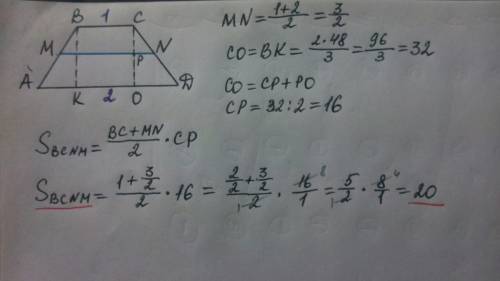 B 1 C
M N
P
A K 2 O D
MN = (1+2)/2 = 3/2
CO = BK = (2·48)/3 = 96/3 = 32
CO = CP + PO
CP = 32 : 2 = 16
S_BCNM = (BC + MN)/2 · CP
S_BCNM = (1 + 3/2)/2 · 16 = (2/2 + 3/2)/2 · 16/1 = 5/2 · 8/1 = 20